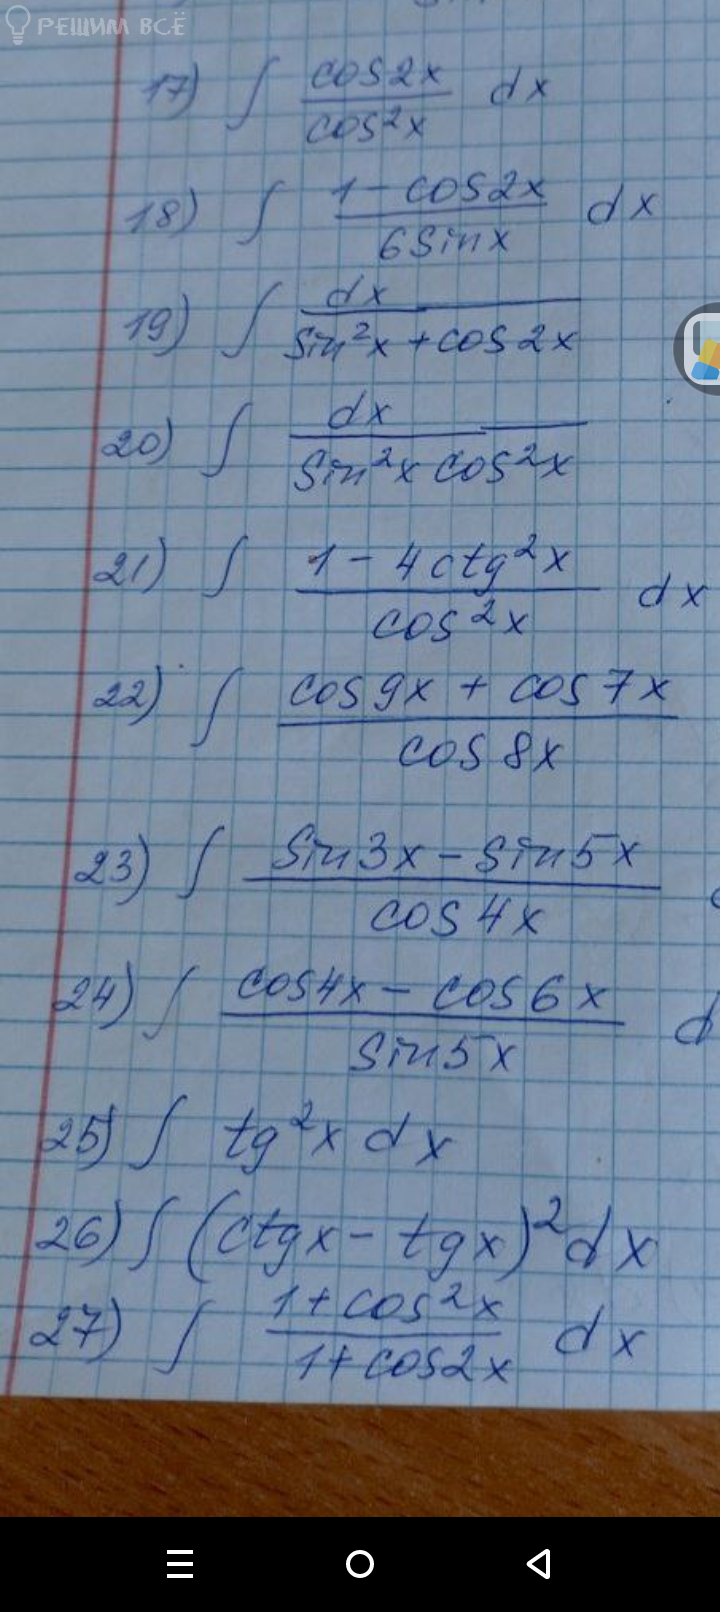 РЕШИМ ВСЁ
17) ∫ cos2x / cos²x dx
18) ∫ 1 - cos2x / 6sinx dx
19) ∫ dx / sin²x + cos2x
20) ∫ dx / sin²x cos²x
21) ∫ 1 - 4ctg²x / cos²x dx
22) ∫ cos9x + cos7x / cos8x
23) ∫ sin3x - sin5x / cos4x
24) ∫ cos4x - cos6x / sin5x d
25) ∫ tg²x dx
26) ∫ (ctgx - tgx)² dx
27) ∫ 1 + cos²x / 1 + cos2x dx